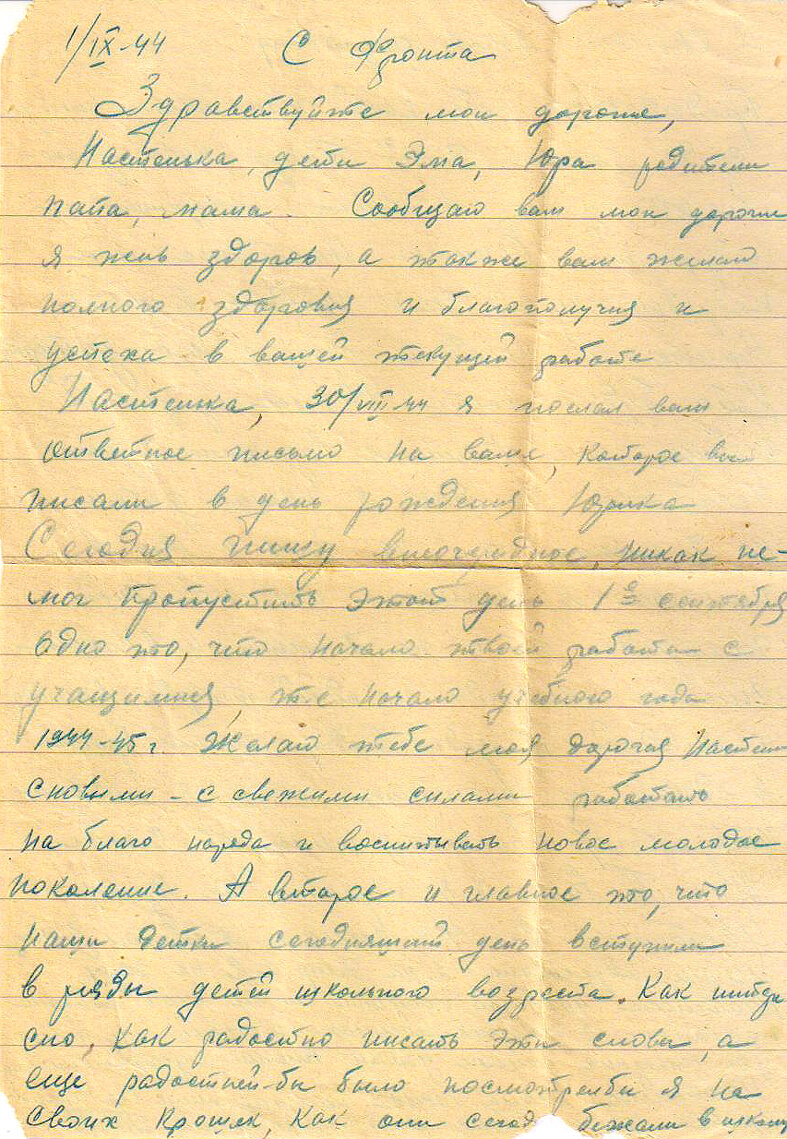 1/IX-44 С Фронта
Здравствуйте мои дорогие,
Настенька, дети Эма, Юра родители
папа, мама. Сообщаю вам мои дорогие
я жив здоров, а также вам желаю
полного здоровия и благополучия и
успеха в вашей текущей работе
Настенька, 30/VIII-44 я послал вам
ответное письмо на ваше, которое вы
писали в день рождения Юрика
Сегодня пишу внеочередное, никак не-
мог пропустить этот день 1е сентября
Одно это, что начало твоей работы с
учащимися, т.е начало учебного года
1944-45 г. Желаю тебе моя дорогая Настень
сновыми - с свежими силами работать
на благо народа и воспитывать новое молодое
поколение. А второе и главное это, что
наши детки сегодняшний день вступили
в ряды детей школьного возроста. Как интере
сно, как радостно писать эти слова, а
еще радостней-бы было посмотрелбы я на
своих крошек, как они сегод бежали в школу